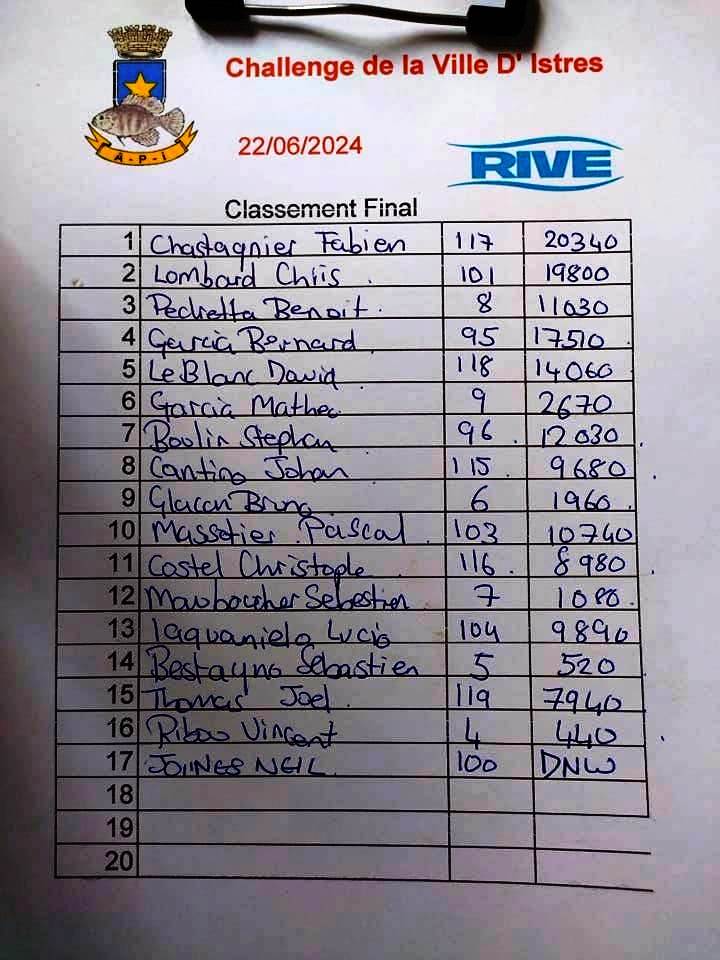 Challenge de la Ville D' Istres
A-P-I
22/06/2024
RIVE
Classement Final
1 Chastagnier Fabien 117 20340
2 Lombard Chris 101 19800
3 Pedretta Benoit 8 11030
4 Garcia Bernard 95 17510
5 LeBlanc David 118 14060
6 Garcia Matheo 9 2670
7 Boulin Stephan 96 12030
8 Cantino Johan 115 9680
9 Glacon Bruno 6 1960
10 Massetier Pascal 103 10740
11 Costel Christophe 116 8980
12 Mauboucher Sebastien 7 1080
13 Iaquaniela Lucio 104 9890
14 Bestayno Sebastien 5 520
15 Thomas Joel 119 7940
16 Ribou Vincent 4 440
17 JOINES NEIL 100 DNW
18
19
20